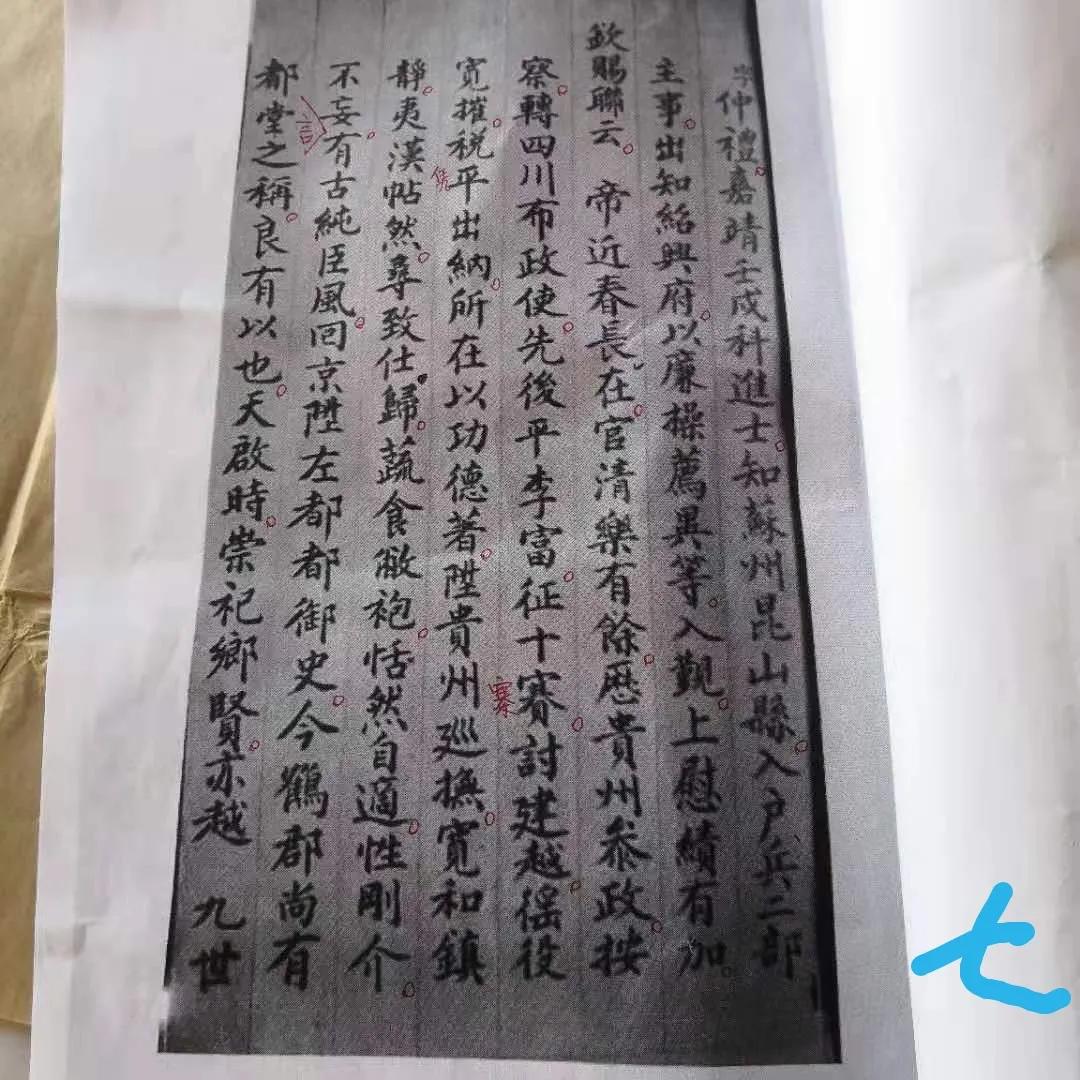 字仲禮。嘉靖壬戌科進士。知蘇州昆山縣。入户兵二部
主事。出知紹興府。以廉操薦異等。入覲。上慰績有加。
欽賜聯云。帝近春長在。官清樂有餘。歷貴州參政。按
察。轉四川布政使。先後平李富。征十賽。討建越。徭役
寨
寬。摧税平出納。所在以功德著。陞貴州巡撫。寬和鎮
靜。夷漢帖然。尋致仕歸。蔬食敝袍。恬然自適。性剛介。
不妄有。古純臣風。回京陞左都都御史。今鶴郡尚有
言
都堂之稱。良有以也。天啟時。崇祀鄉賢。亦越 九世
七